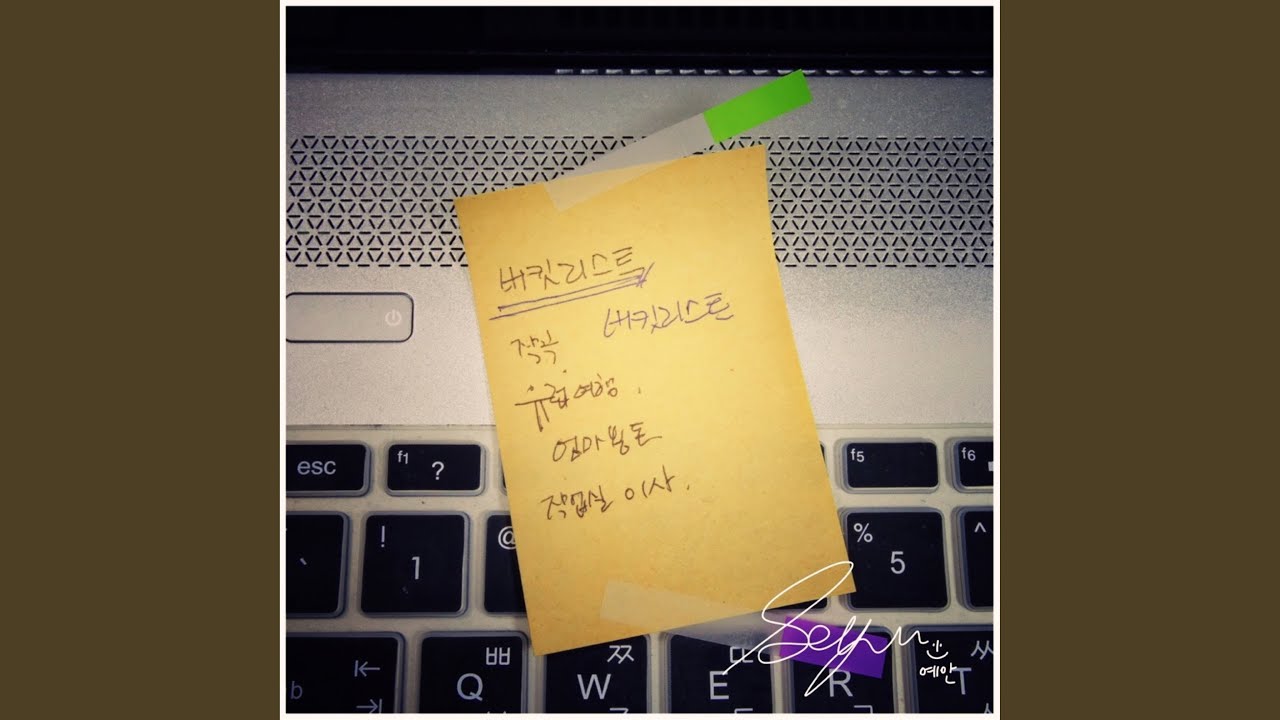 버킷리스트
버킷리스트
작곡
유럽여행.
엄마용돈
작업실 이사.
esc
f1 ?
f5
f6
! 1
@
% 5
^
ㅃ Q
ㅉ W
ㄸ E
R
ㅆ T
b
예안